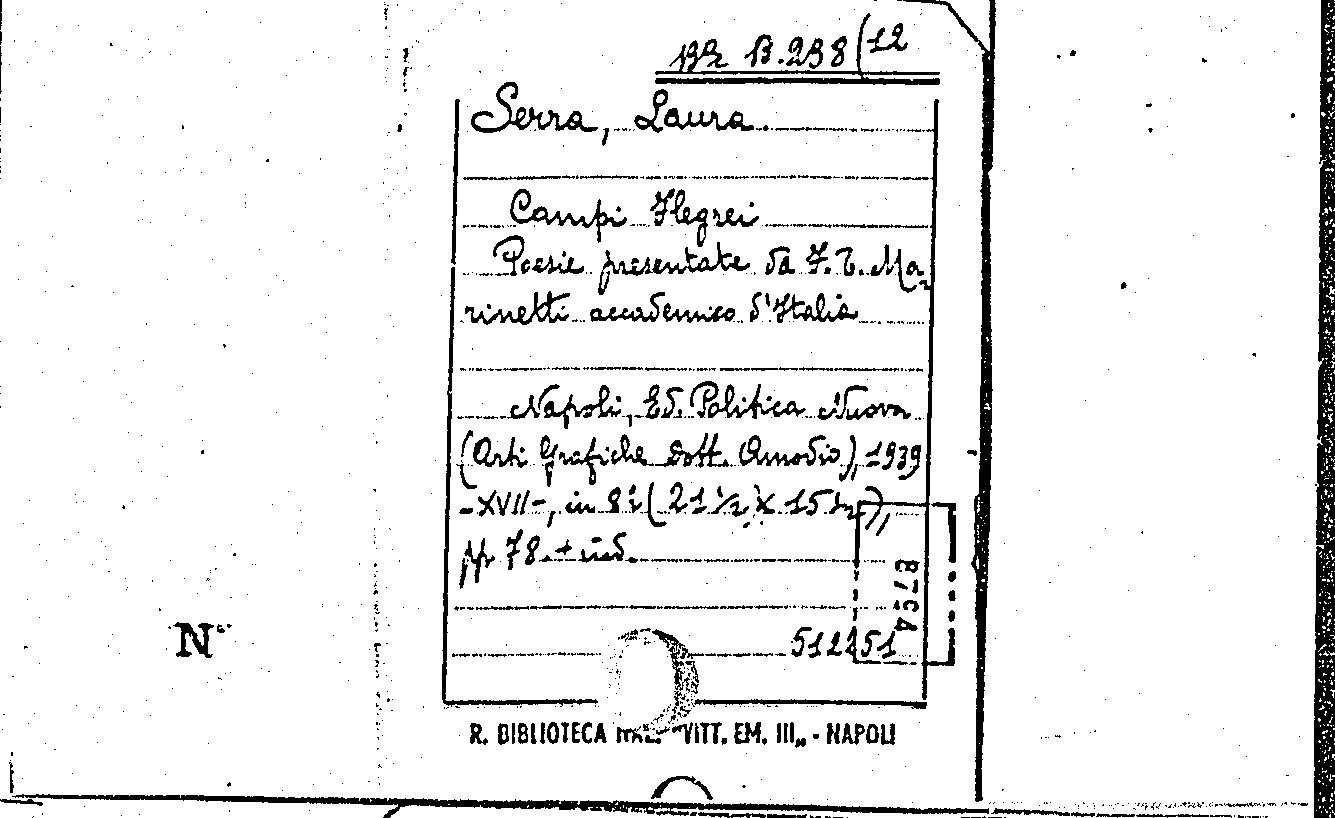 BR B.238(12
Serra, Laura.
Campi Flegrei
Poesie presentate da F. T. Ma-
rinetti accademico d'Italia
Napoli, Ed. Politica Nuova
(Arti Grafiche dott. Amodio), 1939
-XVII-, in 8º (21 ½ X 15 ½),
pp. 78. + ind.
8794
512151
N°
R. BIBLIOTECA NAZ. "VITT. EM. III„ - NAPOLI